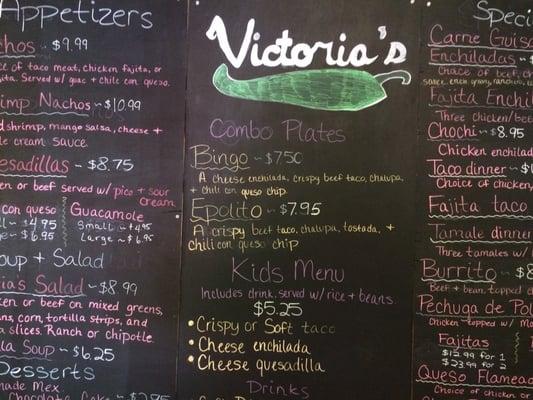 Appetizers
~ $9.99
of taco meat, chicken fajita, or
Served w/ guac + chile con queso.
Nachos ~ $10.99
shrimp, mango salsa, cheese +
cream sauce.
~ $8.75
or beef served w/ pico + sour
cream
con queso
~ $4.95
~ $6.95
Guacamole
Small ~ $4.95
Large ~ $6.95
+ Salad
Salad ~ $8.99
or beef on mixed greens,
corn, tortilla strips, and
slices. Ranch or chipotle
Soup ~ $6.25
Desserts
Mex.
Chocolate Cake ~ $2.95
Victoria's
Combo Plates
Bingo ~ $7.50
A cheese enchilada, crispy beef taco, chalupa,
+ chili con queso chip.
Epolito ~ $7.95
A crispy beef taco, chalupa, tostada, +
chili con queso chip
Kids Menu
Includes drink, served w/ rice + beans.
$5.25
• Crispy or Soft taco
• Cheese enchilada
• Cheese quesadilla
Drinks
Carne Guisa
Enchiladas ~
Choice of beef,
Fajita Enchi
Three chicken/bee
Chochi ~ $8.95
Chicken enchilad
Taco dinner ~ $
Choice of chicken,
Fajita taco
Tamale dinner
Three tamales w/
Burrito ~ $8
Beef + bean, topped
Pechuga de Pol
Chicken topped w/
Fajitas
$12.99 for 1
$23.99 for 2
Queso Flamea
Choice of chicken or